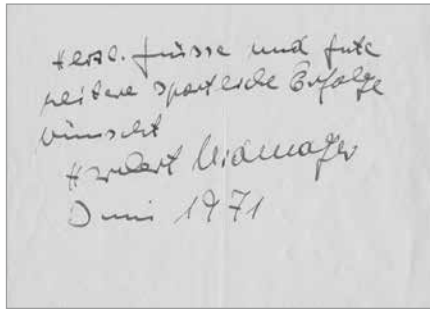 Herzl. Grüsse und gute
weitere sportliche Erfolge
wünscht
Herbert Widmayer
Juni 1971